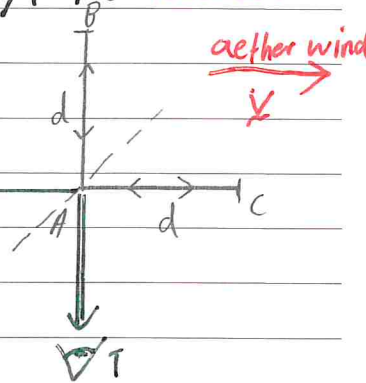 B
aether wind
V
d
A
d
C
T